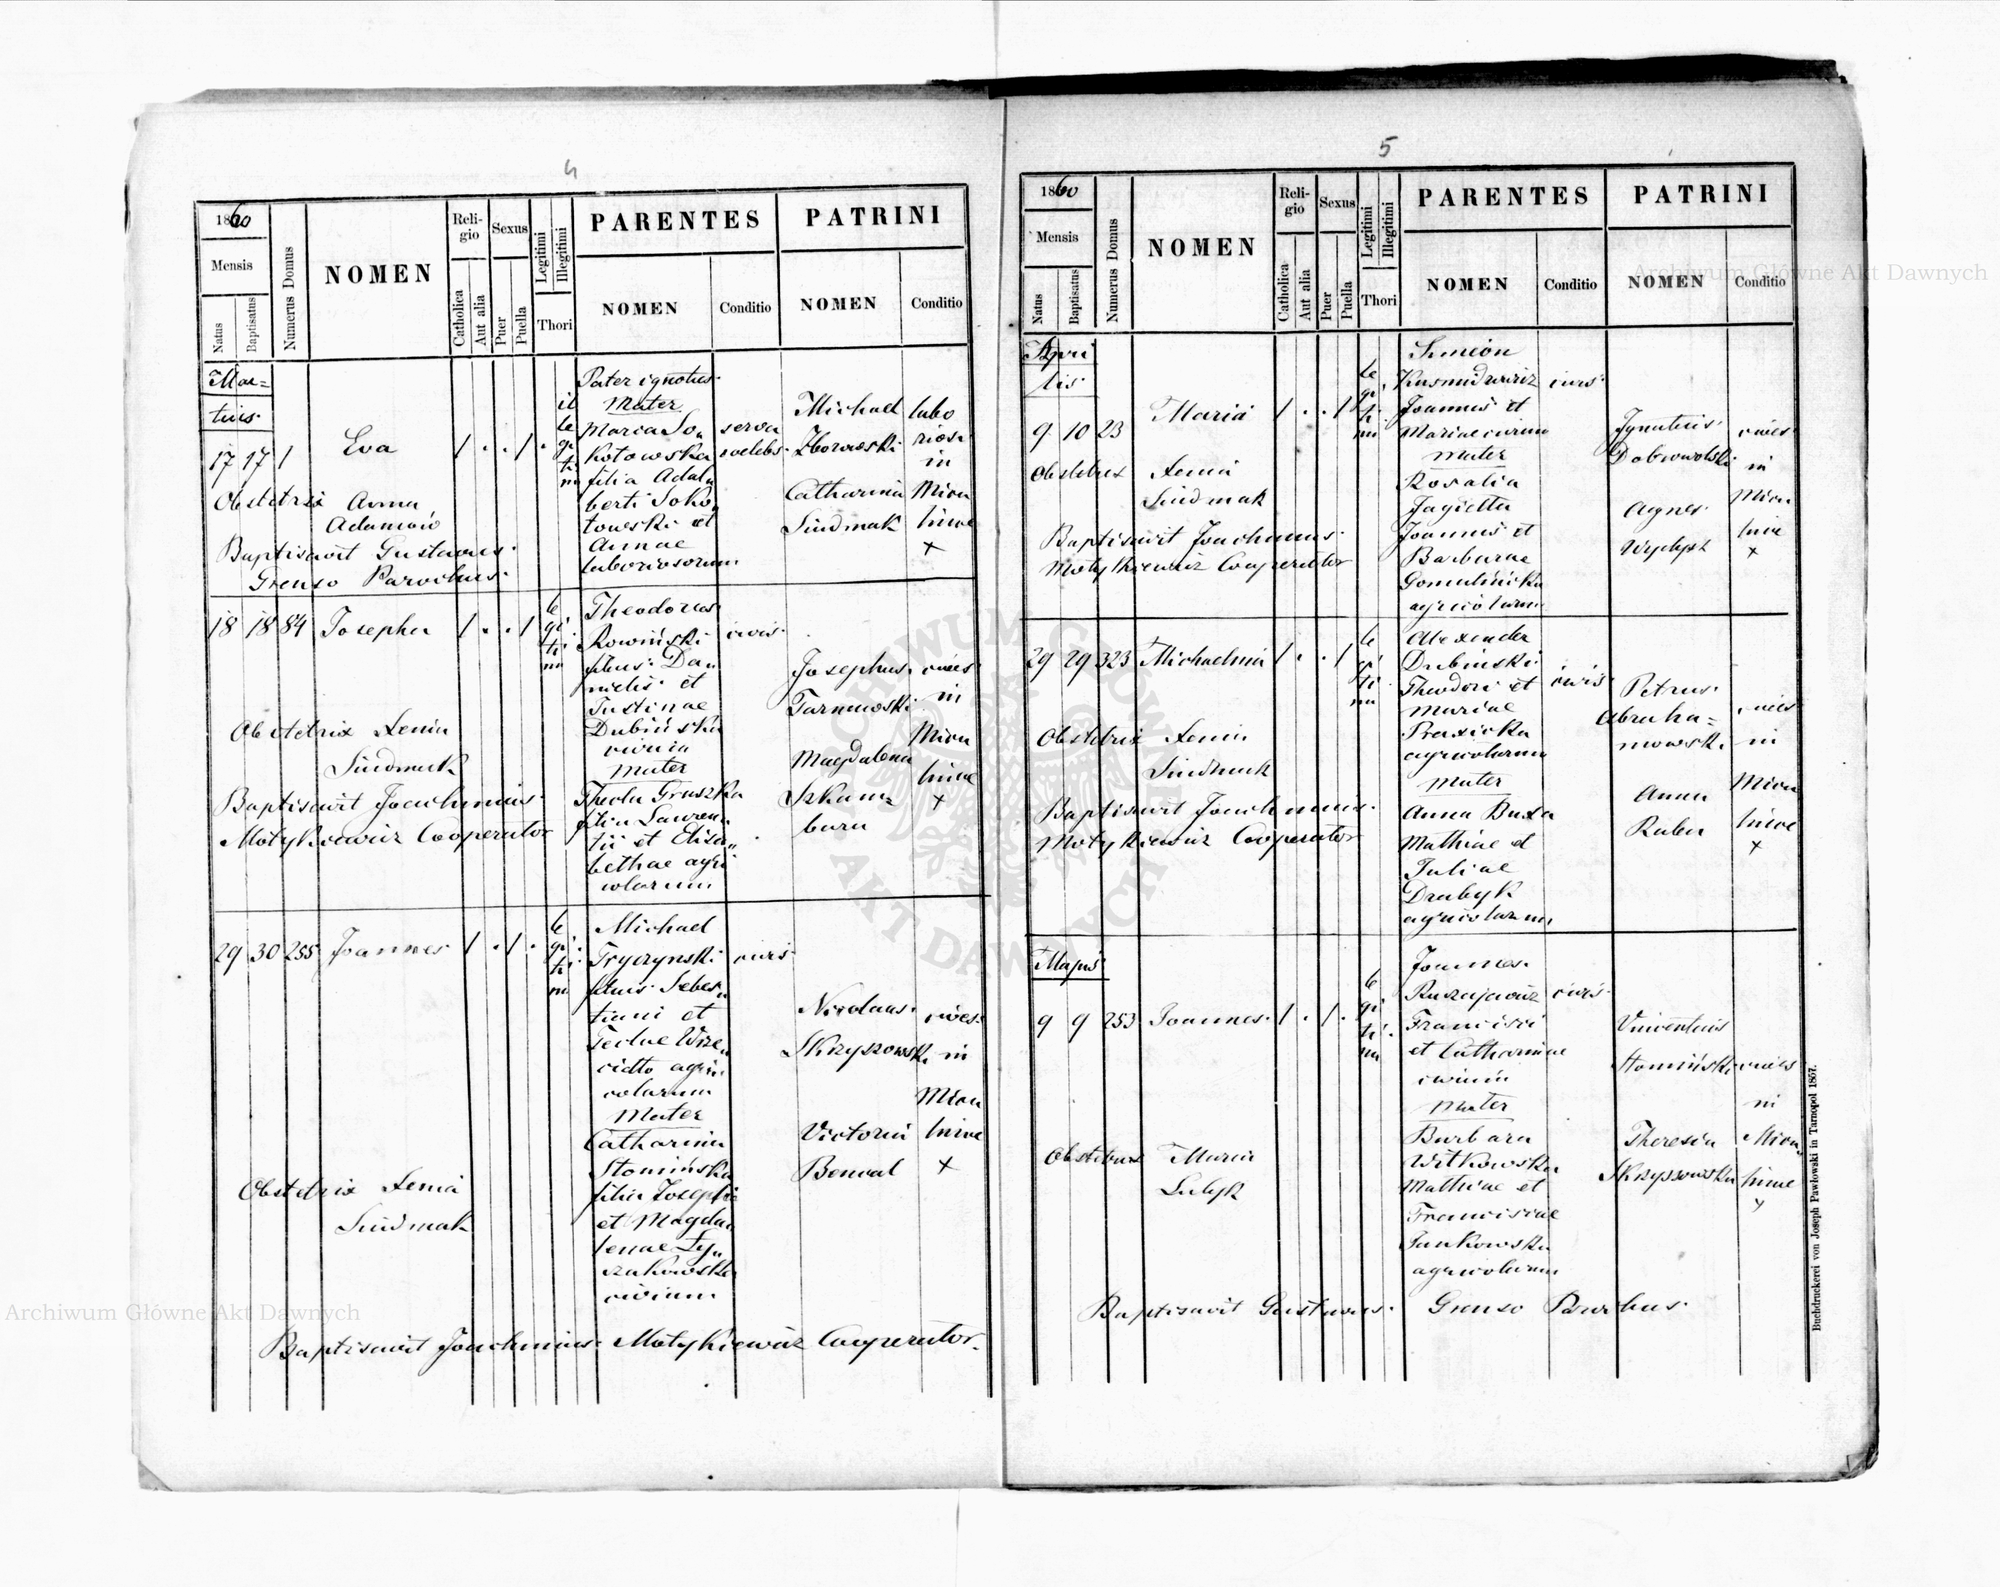 4
1860
Mensis
Natus
Baptisatus
Numerus Domus
NOMEN
Reli-
gio
Catholica
Aut alia
Sexus
Puer
Puella
Legitimi
Illegitimi
Thori
PARENTES
NOMEN
Conditio
PATRINI
NOMEN
Conditio
Mar=
tius
17 17 1 Eva 1 . . 1 .
il
le
gi
ti
mi
Pater ignotus
Mater
Maria So„
kołowska
filia Adal„
berti Soko„
łowski et
Annae
laboriosorum
serva
caelebs
Michael
Zborowski
Catharina
Sindmak
labo
riosi
in
Miku
lince
+
Obstetrix Anna
Adamow
Baptisavit Gustavus
Grenso Parochus
18 18 84 Josepha 1 . . 1
le
gi
ti
mi
Theodorus
Rowiński
filius Da„
nielis et
Justinae
Dubińska
civium
Mater
Thecla Gruszka
filia Lauren„
tii et Elisa„
bethae agri
colarum
civis
Josephus
Tarnowski
Magdalena
Szkam=
bara
cives
in
Miku
lince
+
Obstetrix Xenia
Sindmak
Baptisavit Joachimus
Motykiewicz Cooperator
29 30 255 Joannes 1 . 1 .
le
gi
ti
mi
Michael
Tryczynski
filius Sebas„
tiani et
Teclae
agri„
colarum
Mater
Catharina
Słomińska
filia Josephi
et Magda„
lenae Ły„
czakowska
civium
civis
Nicolaus
Skrzyszowski
Victoria
Benwal
cives
in
Miku
lince
+
Obstetrix Xenia
Sindmak
Baptisavit Joachimus Motykiewicz Cooperator
5
1860
Mensis
Natus
Baptisatus
Numerus Domus
NOMEN
Reli-
gio
Catholica
Aut alia
Sexus
Puer
Puella
Legitimi
Illegitimi
Thori
PARENTES
NOMEN
Conditio
PATRINI
NOMEN
Conditio
Apri
lis
9 10 23 Maria 1 . . 1
le
gi
ti
mi
Simeon
Joannis et
Mariae civium
Mater
Rosalia
Jagiełła
Joannis et
Barbarae
agricolarum
civis
Ignatius
Dobrowolski
Agnes
cives
in
Miku
lince
+
Obstetrix Xenia
Sindmak
Baptisavit Joachimus
Motykiewicz Cooperator
29 29 323 Michaelina 1 . . 1
le
gi
ti
mi
Alexander
Dubinski
Theodori et
Mariae
agricolarum
Mater
Anna Buxa
Mathiae et
Juliae
Drabyk
agricolarum
civis
Petrus
Abraha=
mowski
Anna
Raben
cives
in
Miku
lince
+
Obstetrix Xenia
Sindmak
Baptisavit Joachimus
Motykiewicz Cooperator
Majus
9 9 253 Joannes 1 . 1 .
le
gi
ti
mi
Joannes
Francisci
et Catharinae
civium
Mater
Barbara
Witkowska
Mathiae et
Franciscae
Jankowska
agricolarum
civis
Vincentius
Słomiński
Theresia
Skrzyszowska
cives
in
Miku„
lince
+
Obstetrix Maria
Baptisavit Gustavus Grenso Parochus
Buchdruckerei von Joseph Pawłowski in Tarnopol 1857.
Archiwum Główne Akt Dawnych
Archiwum Główne Akt Dawnych
ARCHIWUM GŁÓWNE
AKT DAWNYCH